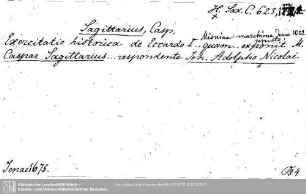 H. Sax. C. 623,
Sagittarius, Casp.
Misniae marchione Jena 1022
Exercitatio historica de Eccardo I. quam exponit M.
Caspar Sagittarius respondente Joh. Adolpho Nicolai.
Jenae 1675.
Sächsische Landesbibliothek -
Staats- und Universitätsbibliothek Dresden